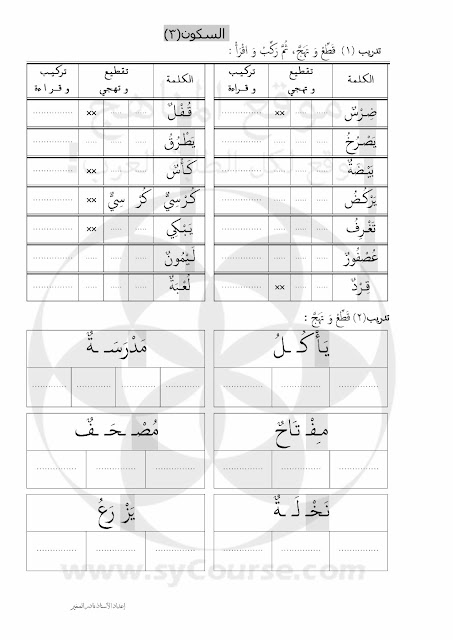 السكون(٣)
تدريب (١) قَطِّعْ وَ تَهَجَّ، ثُمَّ رَكِّبْ وَ اقْرَأْ :
الكلمة تقطيع و تهجي تركيب و قراءة الكلمة تقطيع و تهجي تركيب و قراءة
ضِرْسٌ ...... ...... ×× .................. قُفْلٌ ...... ...... ×× ..................
يَصْرُخُ ...... ...... ...... .................. يَطْرُقُ ...... ...... ...... ..................
بَيْضَةٌ ...... ...... ...... .................. كَأْسٌ ...... ...... ×× ..................
يَرْكُضُ ...... ...... ...... .................. كُرْسِيٌّ كُرْ سِيٌّ ×× ..................
تَعْرِفُ ...... ...... ...... .................. يَبْكِي ...... ...... ×× ..................
عُصْفُورٌ ...... ...... ...... .................. لَيْمُونٌ ...... ...... ...... ..................
قِرْدٌ ...... ...... ×× .................. لُعْبَةٌ ...... ...... ...... ..................
تدريب(٢) قَطِّعْ وَ تَهَجَّ :
يَأْكُـلُ مَدْرَسَـةٌ
مِفْتَاحٌ مُصْـحَـفٌ
نَخْـلَـةٌ يَزْرَعُ
موقع المناهج
موقع لكل الطلاب العرب
www.syCourse.com